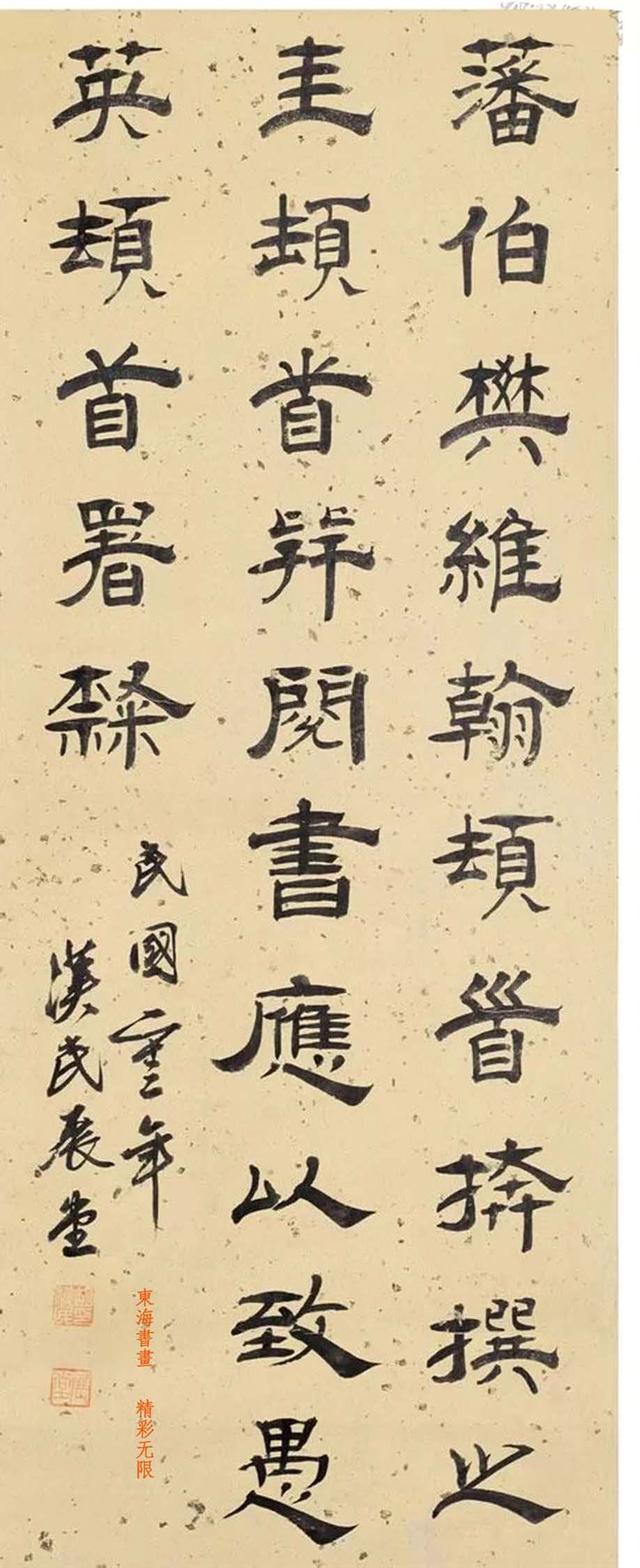 藩伯樊維翰頓首拜撰之
圭頓首并閱書應以致愚
英頓首署
民國年
漢民展堂
東海書畫 精彩无限